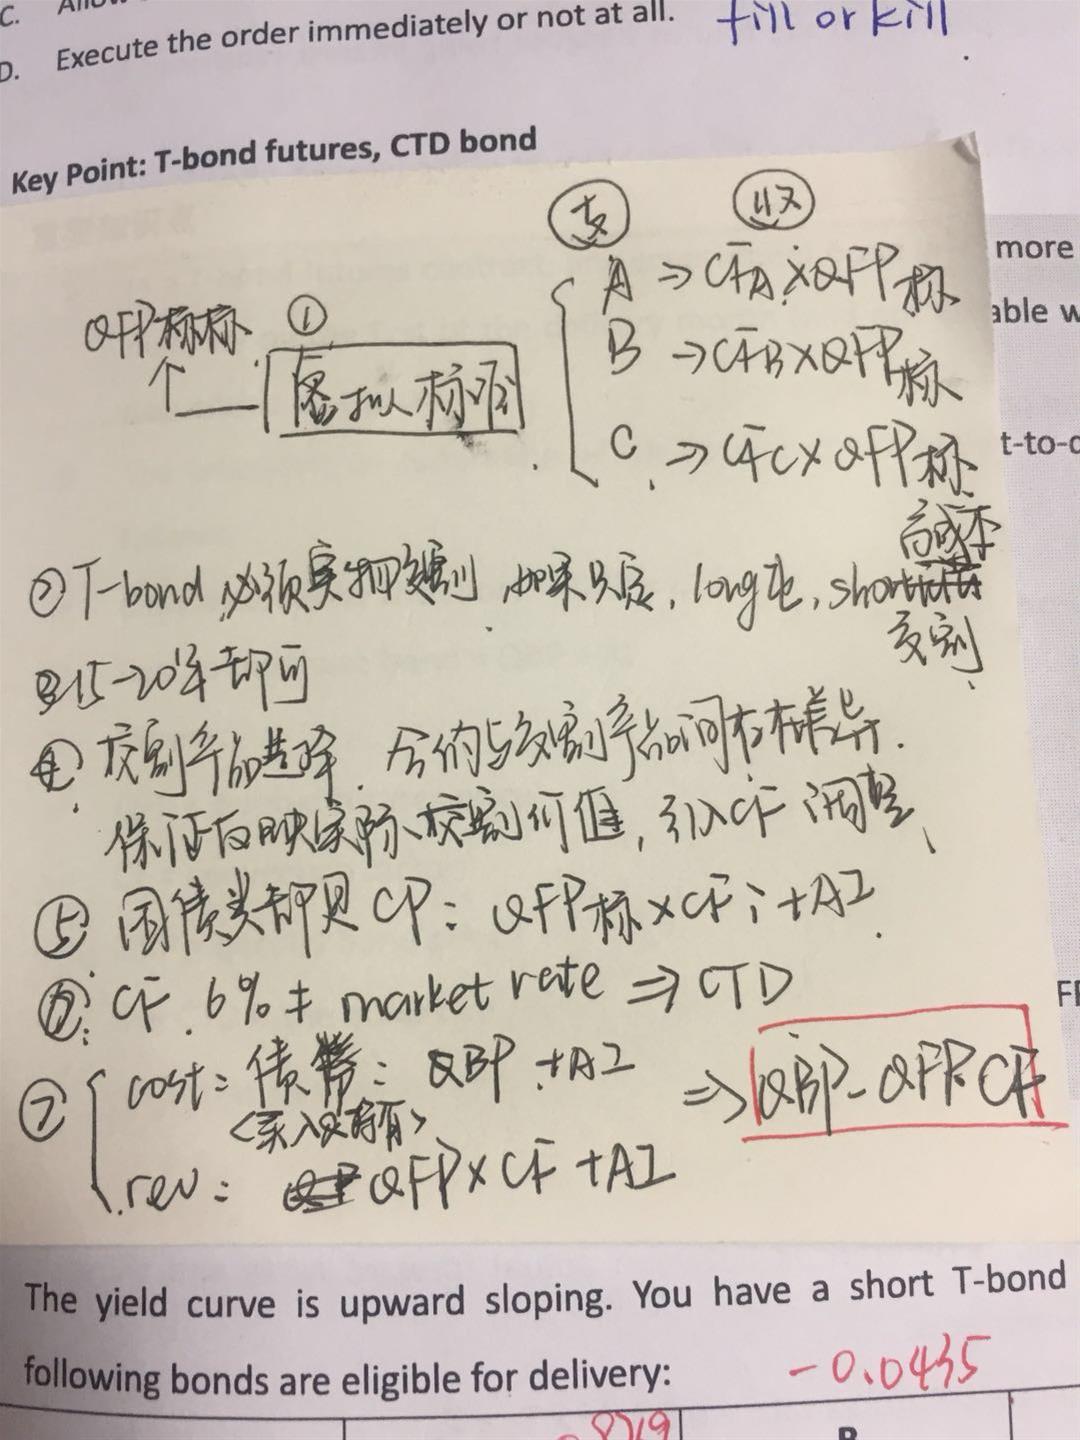 C.
D. Execute the order immediately or not at all. fill or kill
Key Point: T-bond futures, CTD bond
支 收
A ⇒ CFA × QFP标
QFP标标 ①
B → CFB × QFP标
虚拟标的
C ⇒ CFC × QFP标
more
able w
t-to-c
高成本
② T-bond 必须实物交割 如果只能, long宅, short
交割
③ 15-20年都可
④ 交割产品选择 合约与交割产品间存在差异.
保证反映实际交割价值, 引入CF 调整、
⑤ 国债类都是 CP: QFP标 × CFi + AI
⑥ CF. 6% ≠ market rate ⇒ CTD
⑦ cost: 债券: QBP + AI ⇒ QBP - QFP·CF
<买入及持有>
rev: QFP × CF + AI
The yield curve is upward sloping. You have a short T-bond
following bonds are eligible for delivery: -0.0435
.8719 B